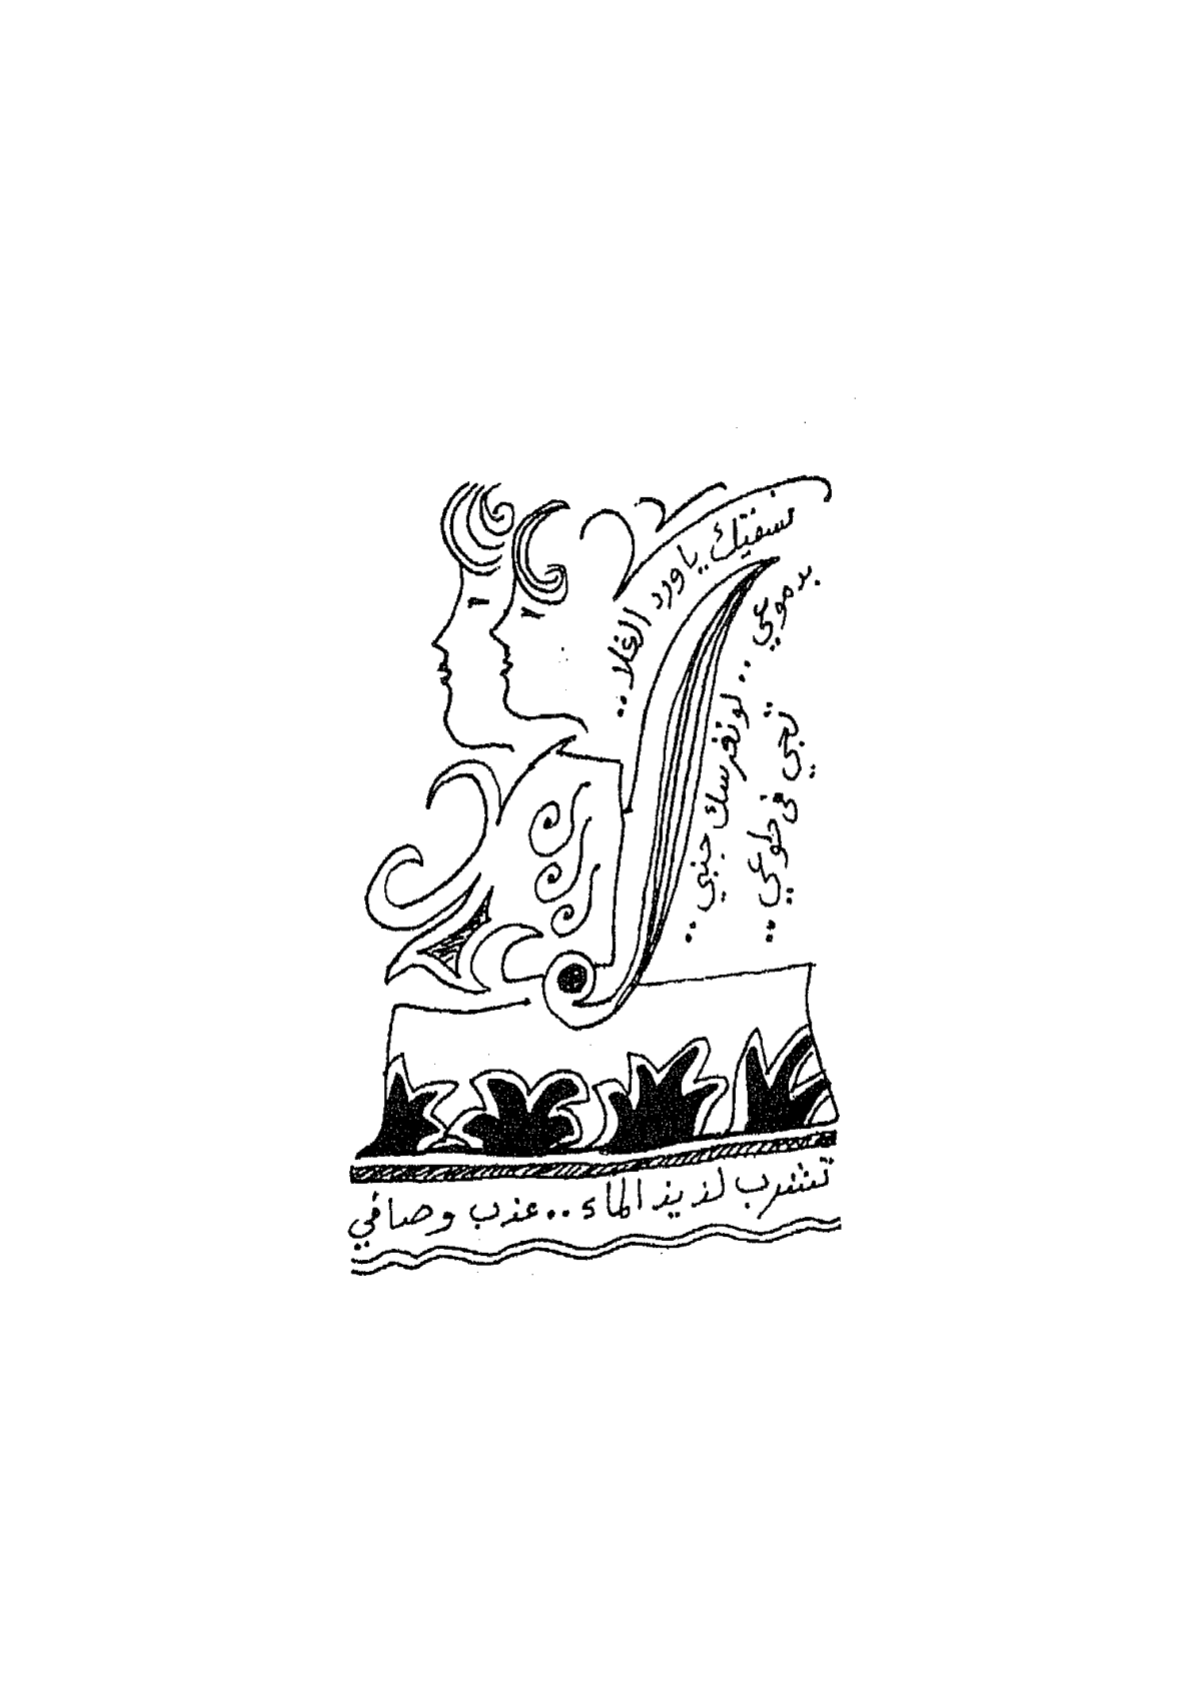 نسقيك يا ورد الغلا..
بدموعي.. لو نغرسك جنبي..
تجي في طوعي..
تشرب لذيذ الماء.. عذب وصافي